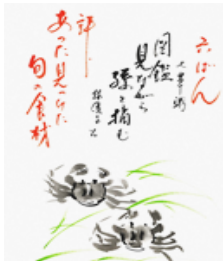 六ばん
図鑑
見ながら
孫と摘む
評
あった見つけた
旬の食材